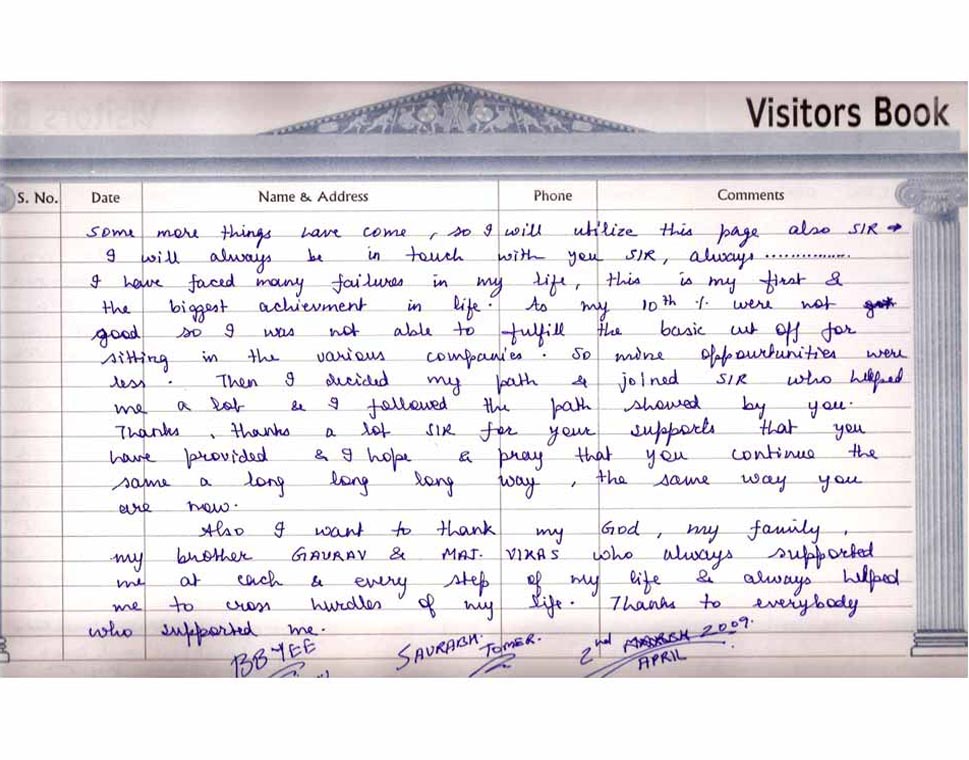 Visitors Book
S. No. Date Name & Address Phone Comments
Some more things have come, so I will utilize this page also SIR →
I will always be in touch with you SIR, always ...............
I have faced many failures in my life, this is my first &
the biggest achievment in life. As my 10th % were not
good so I was not able to fulfill the basic cut off for
sitting in the various companies. So mine oppourtunities were
less. Then I decided my path & joined SIR who helped
me a lot & I followed the path showed by you.
Thanks, thanks a lot SIR for your supports that you
have provided & I hope & pray that you continue the
same a long long long way, the same way you
are now.
Also I want to thank my God, my family,
my brother GAURAV & MAJ. VIKAS who always supported
me at each & every step of my life & always helped
me to cross hurdles of my life. Thanks to everybody
who supported me.
BBYEE SAURABH TOMER. 2nd MARCH 2009.
APRIL